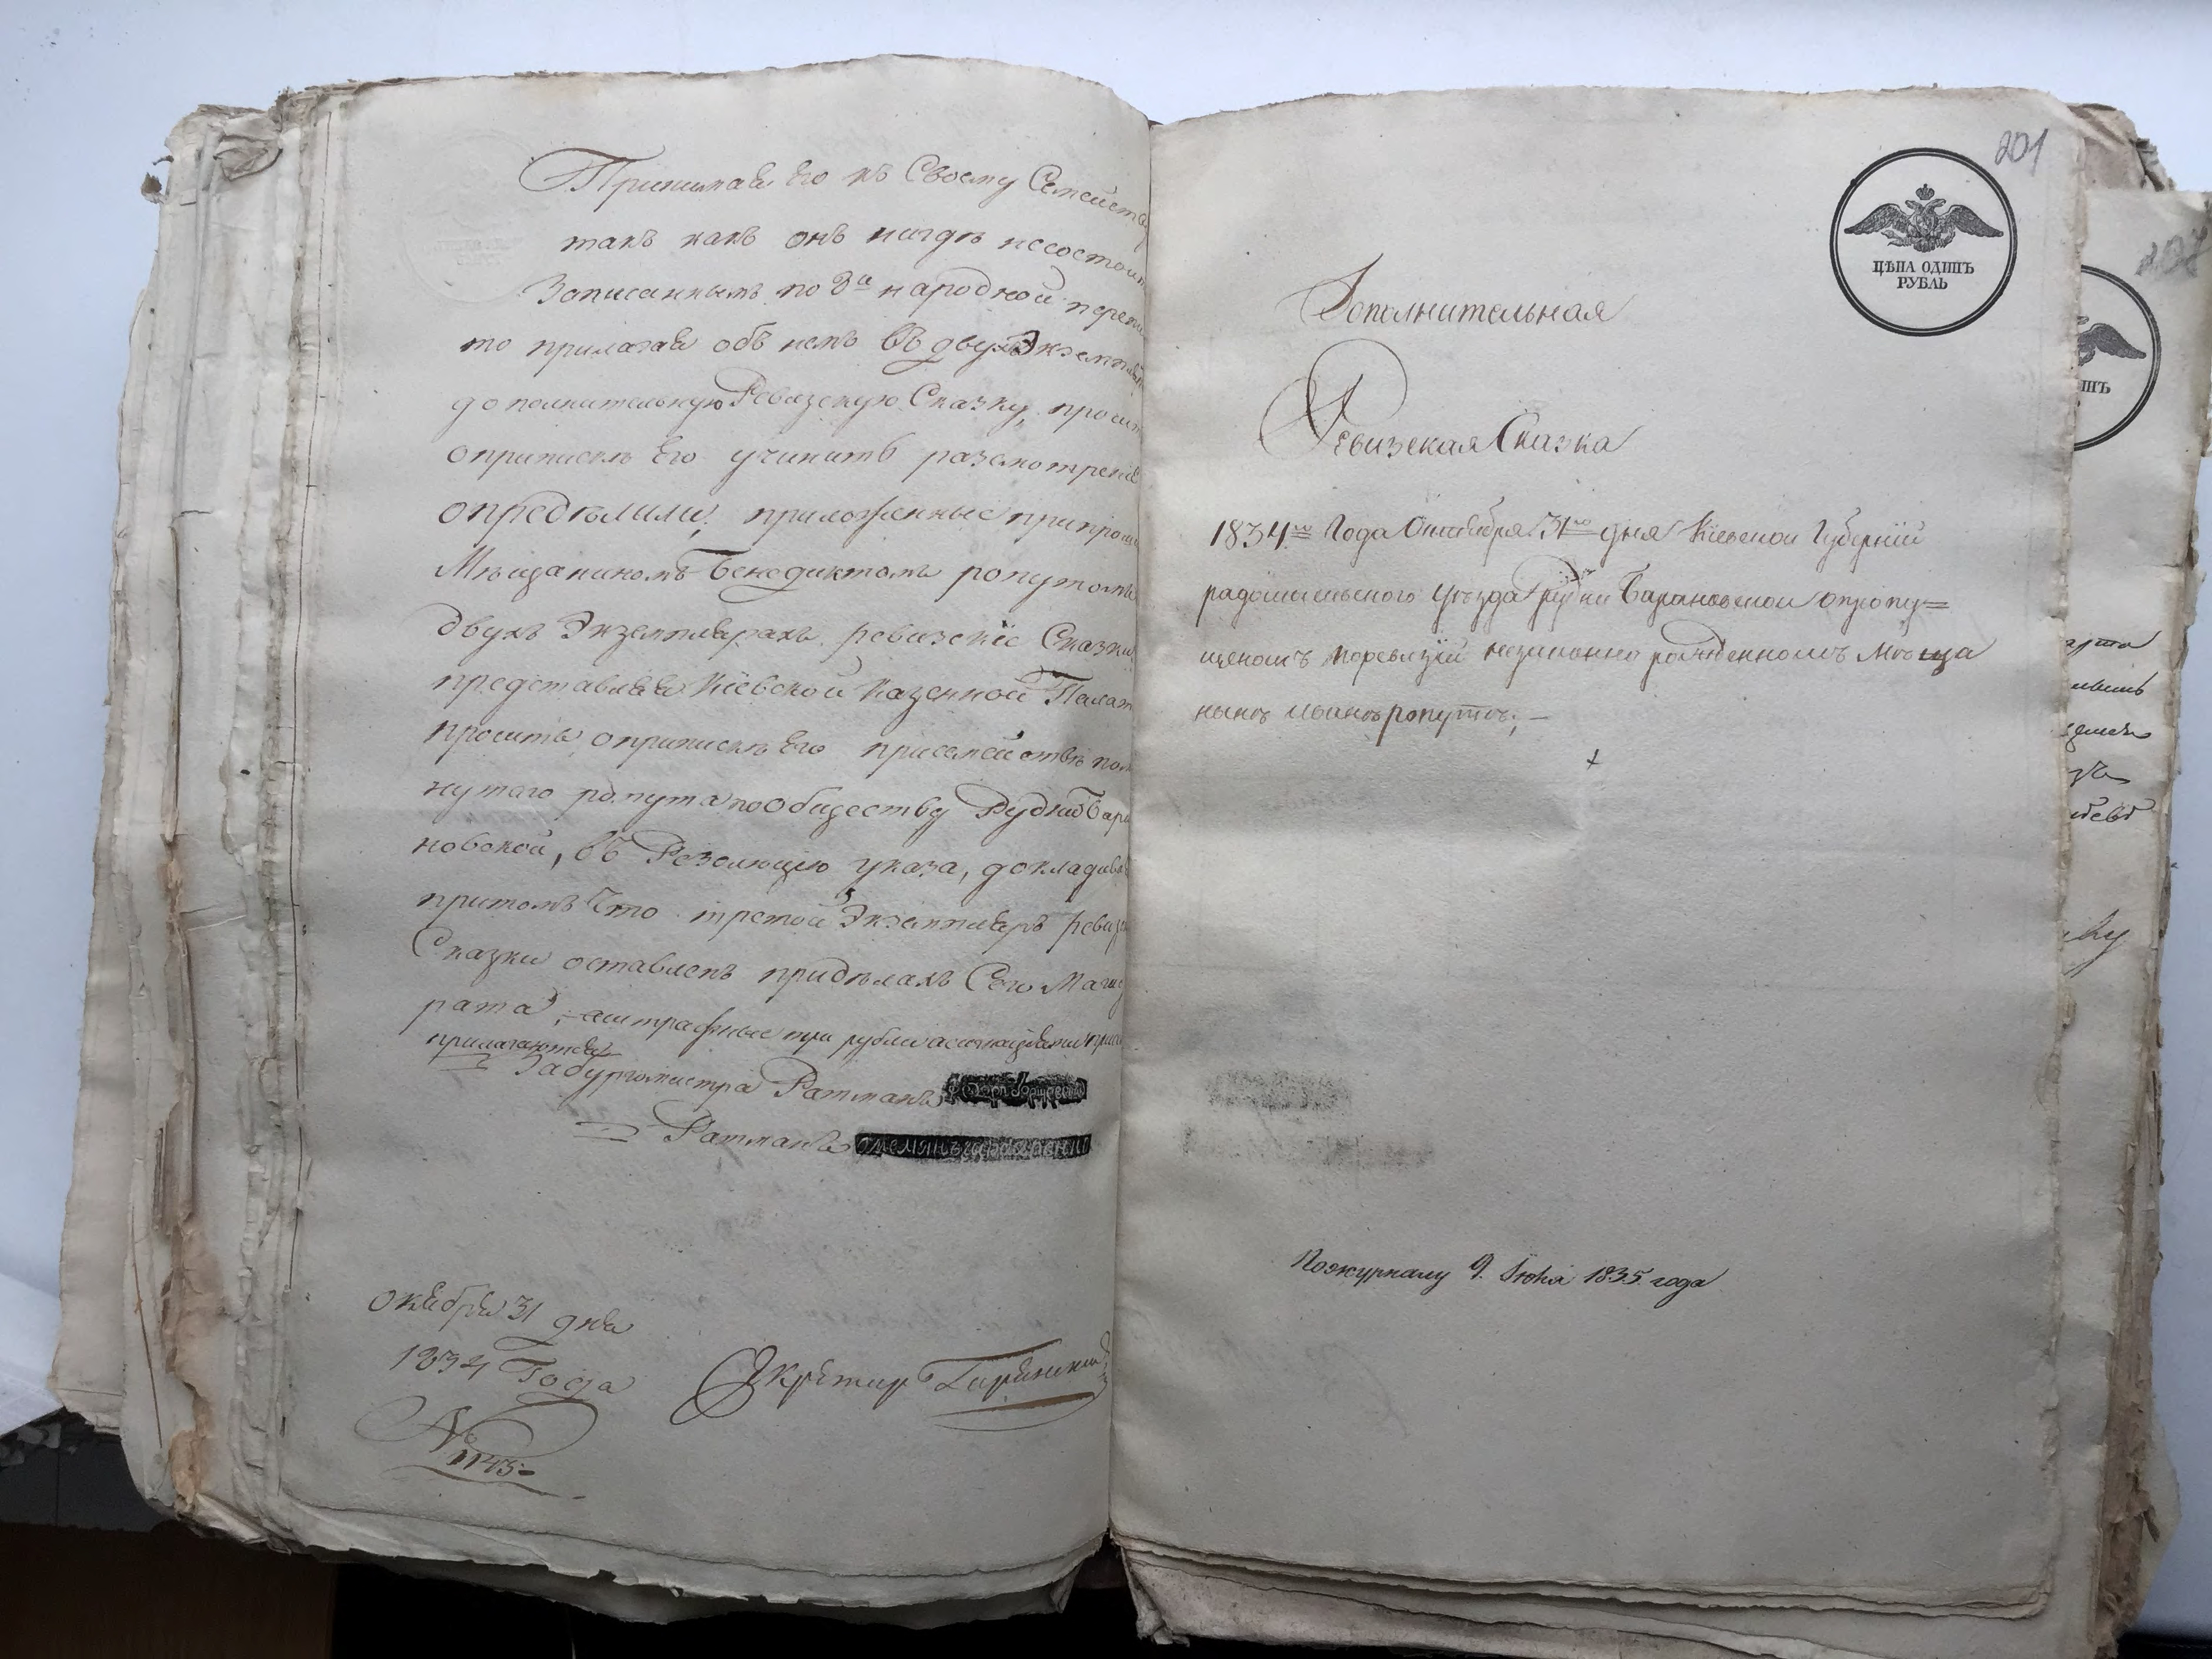 Принимая Его къ Своему Семейству
такъ какъ онъ нигдѣ несостоит
Записаннымъ по 8й народной перепи
то прилагая объ немъ въ двухъ Экземпля
дополнительную Ревизскую Сказку, просит
оприпискѣ Его учинить разсмотрение
опредѣлили: приложенные припрош
Мѣщаниномъ Бенедиктомъ ропутомъ
двухъ Экземплярахъ ревизскіе Сказки
представляя Кіевской Казенной Палат
просить, оприпискѣ Его присемействѣ пом
нутаго ропута пообществу Рудни Бара
новской, въ Резолюцію указа, докладыв
притомъ Что третой Экземпляръ ревиз
Сказки оставленъ придѣлахъ Сего Магис
рата, аштрафные три рубли асигнацыями при
прилагаются
За бургомистра Ратманъ
Ратманъ
октября 31 дня
1834 Года
№ 1143
Секретарь
201
ЦѢНА ОДИНЪ
РУБЛЬ
Дополнительная
Ревизская Сказка
1834го Года Октября 31го дня Кіевской Губерніи
радомысльского уѣзда Рудни Барановской опропу=
щеномъ поревизіи незаконно рожденномъ Мѣща
нынѣ Иванѣ ропутѣ; —
Пожурналу 9. Іюня 1835 года